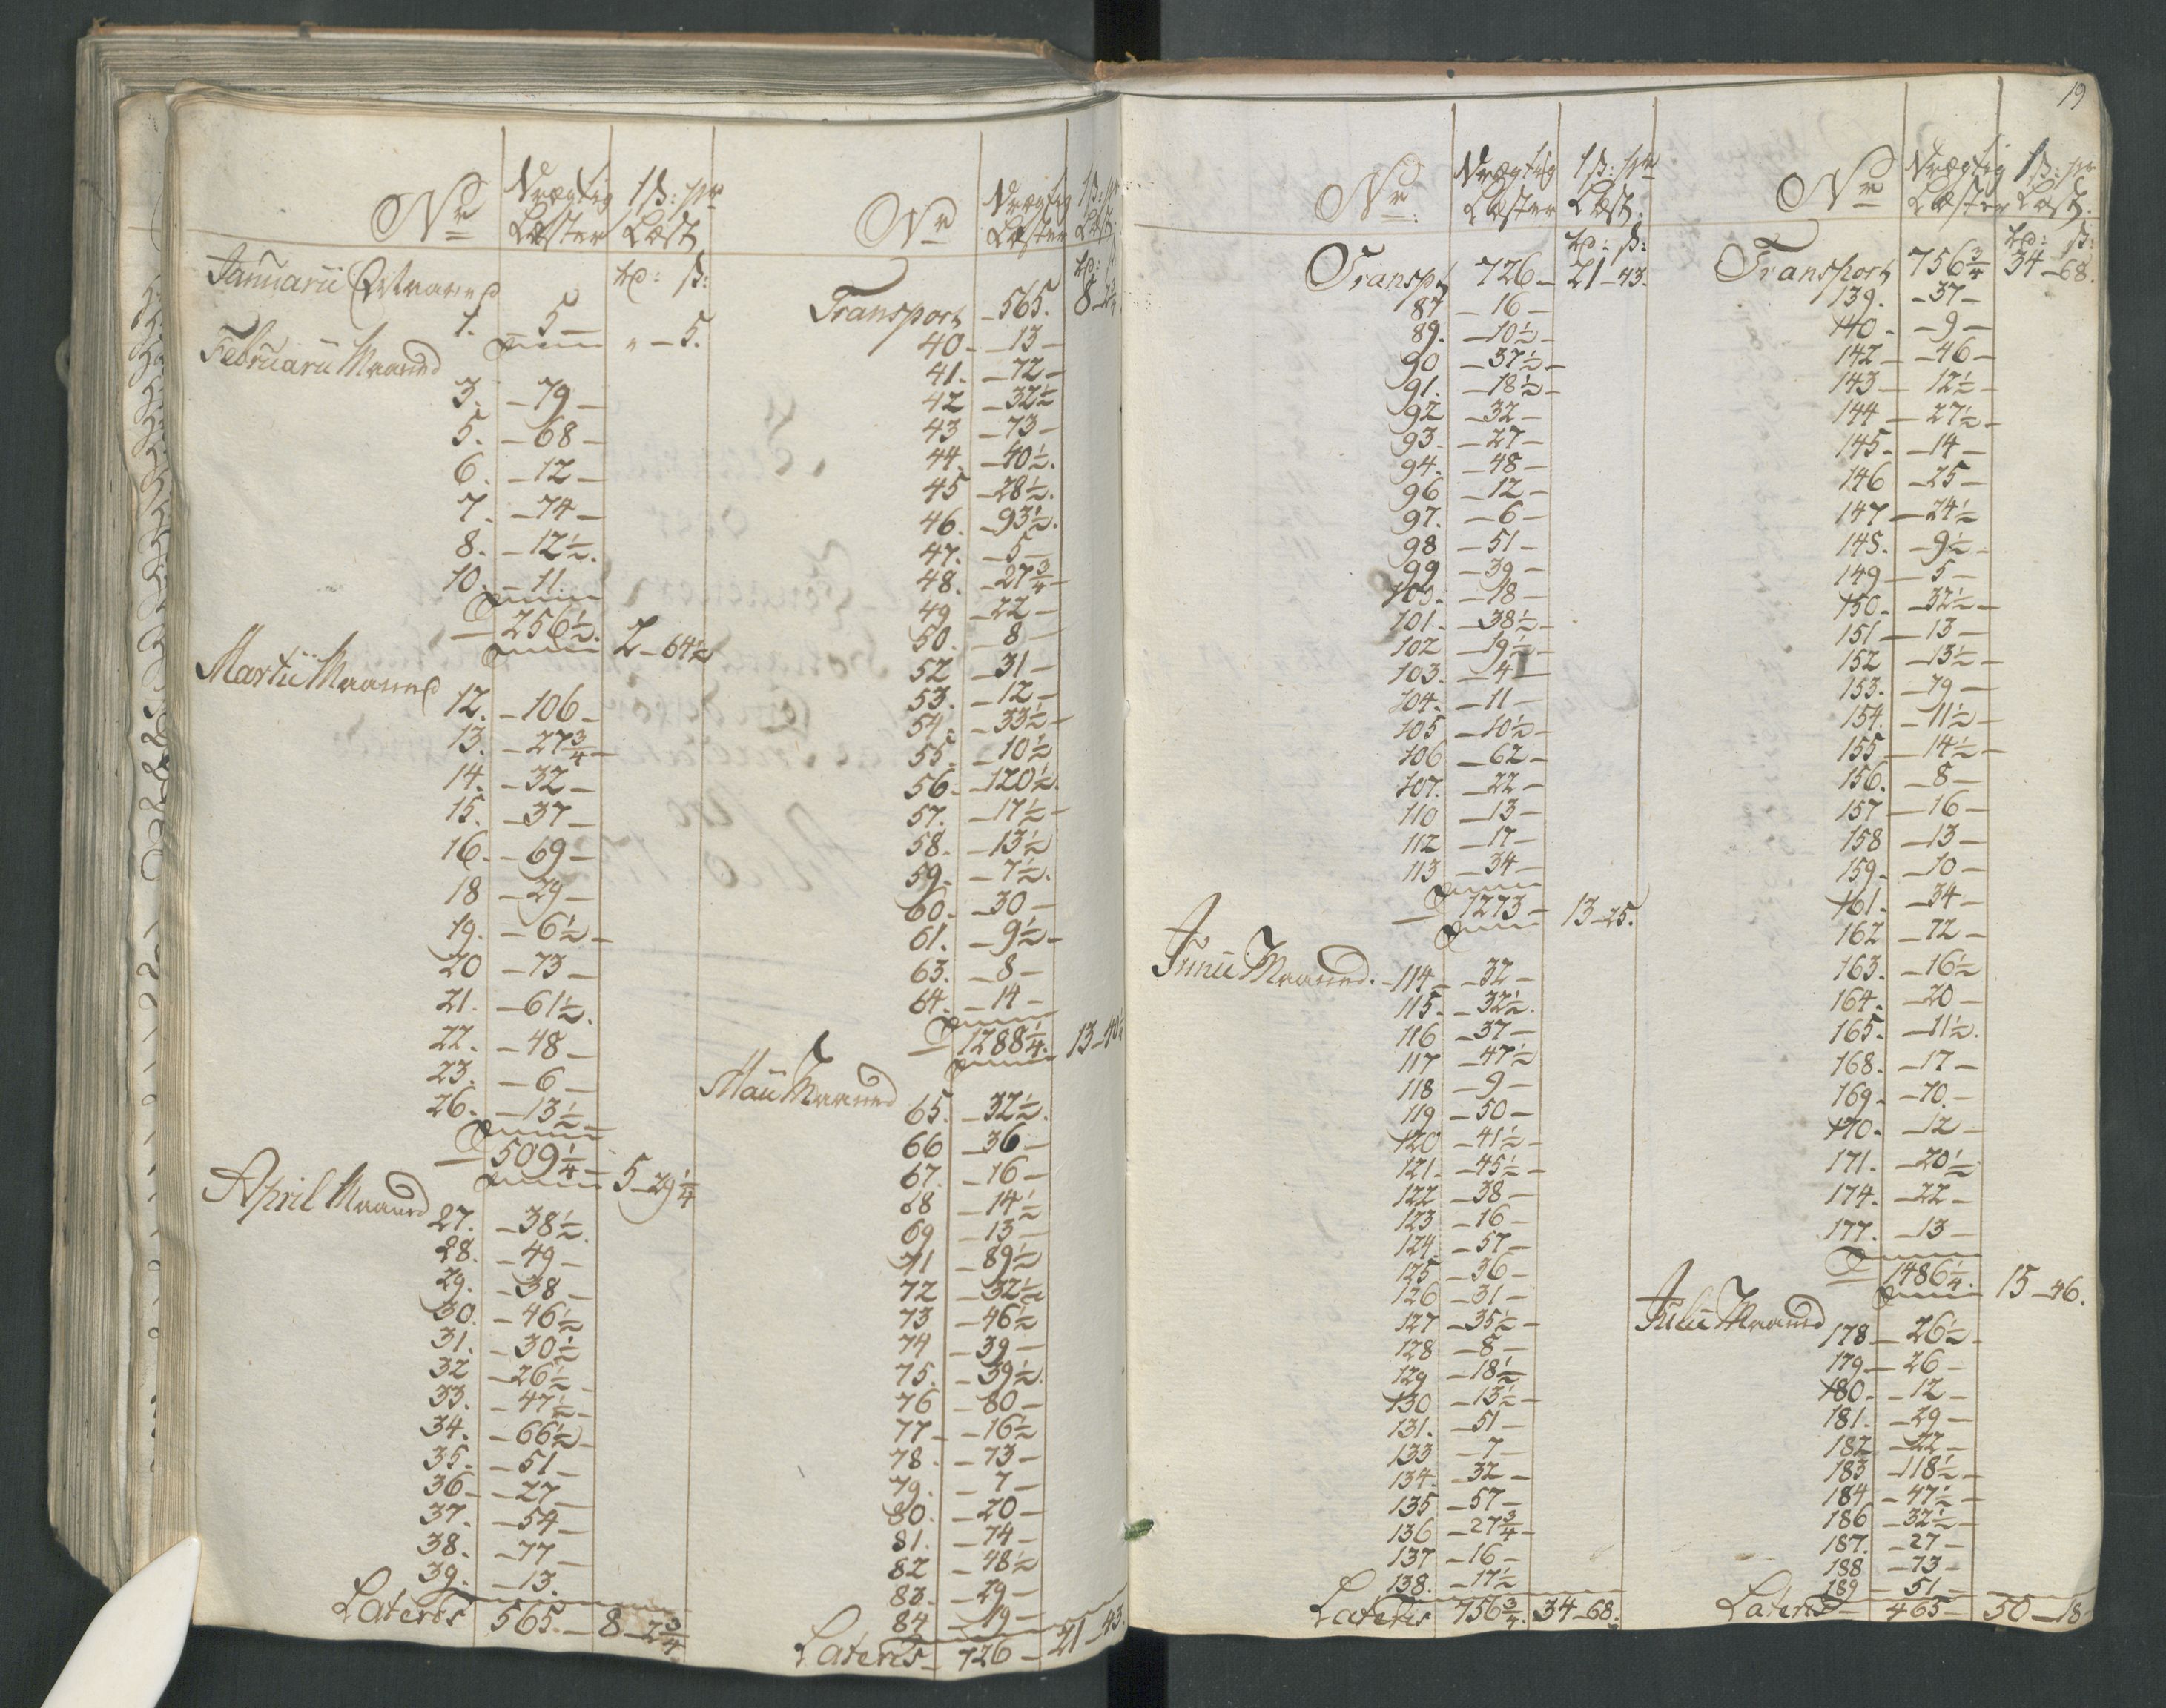 Nr Drægtig Læster 1 ß: pr Læst
rd: ß:
Januarii
1. 5 " 5.
Februarii Maaned
3. 79
5. 68
6. 12
7. 74
8. 12½.
10. 11
256½. 2 64½
Martii Maaned
12. 106
13. 27¾
14. 32
15. 37
16. 69
18 29
19. 6½
20 73
21. 61½.
22. 48
23. 6
26. 13½
509¼ 5 29¼
April Maaned
27. 38½.
28. 49
29. 38
30. 46½
31. 30½
32 26½
33. 47½
34. 66½
35. 51
36 27
37. 54
38. 77
39. 13.
Lateris 565. 8 2¾
Nr Drægtig Læster 1 ß: pr Læst
Transport 565. 8
40. 13
41. 72
42 32½
43 73
44. 40½.
45 28½.
46. 93½.
47. 5
48. 27¾
49 22
50. 8
52 31
53. 12
54. 33½
55. 10½
56. 120½.
57. 17½
58. 13½
59. 7½.
60. 30
61. 9½
63. 8
64. 14
1288¼. 13 40¼
Maii Maaned
65. 32½.
66 36
67. 16
68 14½
69 13
71 89½
72 32½
73 46½
74 39
75. 39½.
76 80
77 16½
78. 73
79. 7
80. 20
81. 74
82 48½
83. 29
84 19
Lateris 726 21 43.
19
Nr. Drægtig Læster 1 ß: pr Læst.
rd: ß:
Transpt 726 21 43.
87 16
89. 10½
90 37½
91. 18½
92 32
93. 27
94. 48
96 12
97. 6
98 51
99 39
100. 18
101. 38½
102 19½
103. 4
104. 11
105 10½
106 62
107. 22
110 13
112 17
113 34
1273 13 25.
Junii Maaned.
114 32
115. 32½.
116 37
117 47½
118 9
119 50
120 41½
121. 45½
122 38
123 16
124. 57
125 36
126 31
127 35½
128 8
129 18½
130 13½
131. 51
133 7
134. 32
135 57
136 27¾
137 16
138. 17½
Lateris 756¾. 34 68.
Nr Drægtig Læster 1 ß: pr Læst.
rd: ß:
Transport 756¾ 34 68.
139. 37
140. 9
142 46
143 12½
144 27½
145. 14
146 25
147 24½
148. 9½
149 5
150. 32½
151 13
152 13½
153. 79
154. 11½
155 14½
156. 8
157 16
158 13
159. 10
161. 34
162 72
163. 16½
164. 20
165. 11½.
168. 17
169. 70.
170. 12
171. 20½
174. 22
177. 13
1486¼. 15 46.
Julii Maaned
178 26½
179 26
180. 12
181. 29
182 22
183 118½
184 47½
186 32½
187. 27
188 73
189 51
Lateris 465 50 18